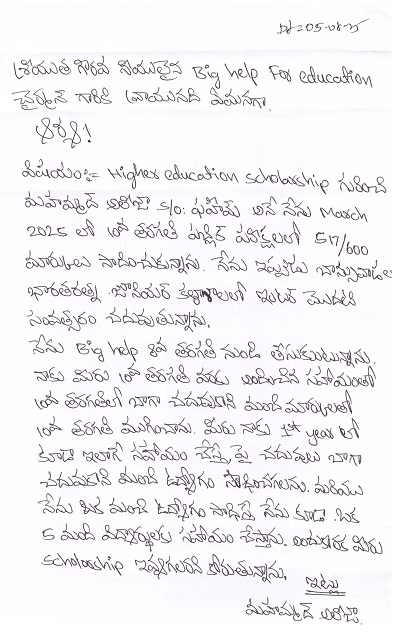 Dt=05-08-25
శ్రీయుత గౌరవ నీయులైన Big help For education
చైర్మన్ గారికి వ్రాయునది ఏమనగా.
విషయం:- Higher education scholarship గురించి
మహమ్మద్ S/o. ఫహీమ్ అనే నేను March
2025 లో 10వ తరగతి పబ్లిక్ పరీక్షలలో 517/600
మార్కులు సాధించుకున్నాను. నేను ఇప్పుడు బాన్సువాడలో
భారతరత్న జూనియర్ కళాశాలలో ఇంటర్ మొదటి
సంవత్సరం చదువుతున్నాను.
నేను Big help 8వ తరగతి నుండి తీసుకుంటున్నాను.
నాకు మీరు 10వ తరగతి వరకు అందించిన సహాయంతో
10వ తరగతిలో బాగా చదువుకొని మంచి మార్కులతో
10వ తరగతి ముగించాను. మీరు నాకు 1st year లో
కూడా ఇలాగే సహాయం చేస్తే, పై చదువులు బాగా
చదువుకొని మంచి ఉద్యోగం సాధించగలను. మరియు
నేను ఒక మంచి ఉద్యోగం సాధిస్తే నేను కూడా ఒక
5 మంది విద్యార్థులకు సహాయం చేస్తాను. అందుకొరకు మీరు
scholarship ఇవ్వగలరని కోరుతున్నాను.
ఇట్లు
మహమ్మద్